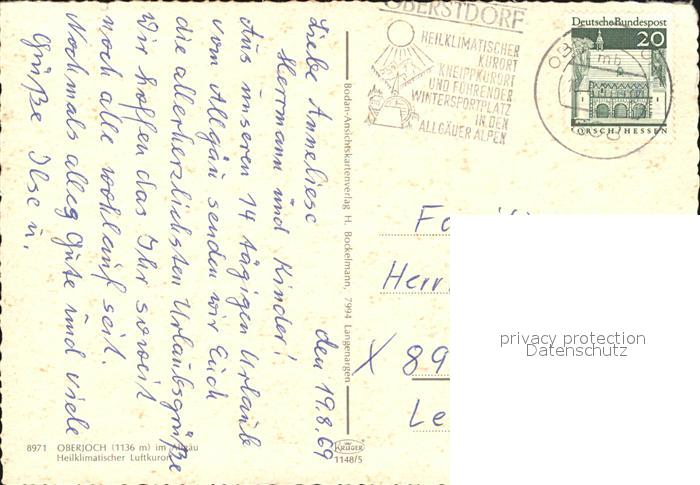 OBERSTDORF
HEILKLIMATISCHER
KURORT
KNEIPPKURORT
UND FÜHRENDER
WINTERSPORTPLATZ
IN DEN
ALLGÄUER ALPEN
Deutsche Bundespost
20
mb
LORSCH/HESSEN
den 19.8.69
Liebe Anneliese
Herrmann und Kinder!
Aus unseren 14 tägigen Urlaub
vom Allgäu senden wir Euch
die allerherzlichsten Urlaubsgrüße
Wir hoffen das Ihr soweit
noch alle wohlauf seit.
Nochmals alles Gute und viele
Grüße Ilse u.
Bodan-Ansichtskartenverlag H. Bockelmann, 7994 Langenargen
Fa
Herr
X 89
Le
privacy protection
Datenschutz
8971 OBERJOCH (1136 m) im Allgäu
Heilklimatischer Luftkurort
KRÜGER
1148/5